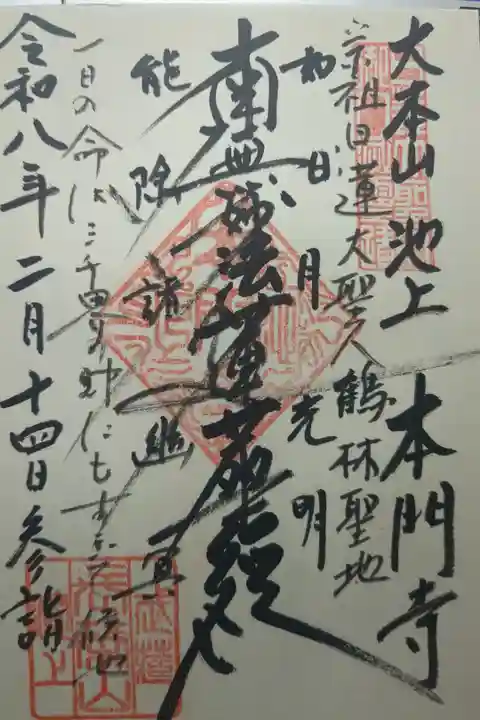 大本山 池上 本門寺
宗祖日蓮大聖人 鶴林聖地
如日月光明
南無妙法蓮華経
能除諸幽冥
一日の命は三千界の財にもすぎて候也
令和八年二月十四日参詣